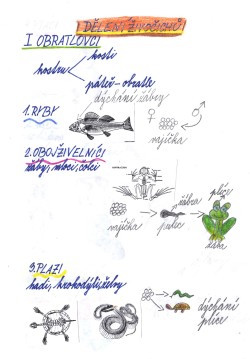 DĚLENÍ ŽIVOČICHŮ
I OBRATLOVCI
kosti
kostru
páteř - obratle
dýchání žábry
1. RYBY
vajíčka
2. OBOJŽIVELNÍCI
žáby, mloci, čolci
plíce
žábra
vajíčka
pulec
žába
3. PLAZI
hadi, krokodýli, želvy
dýchání
plíce